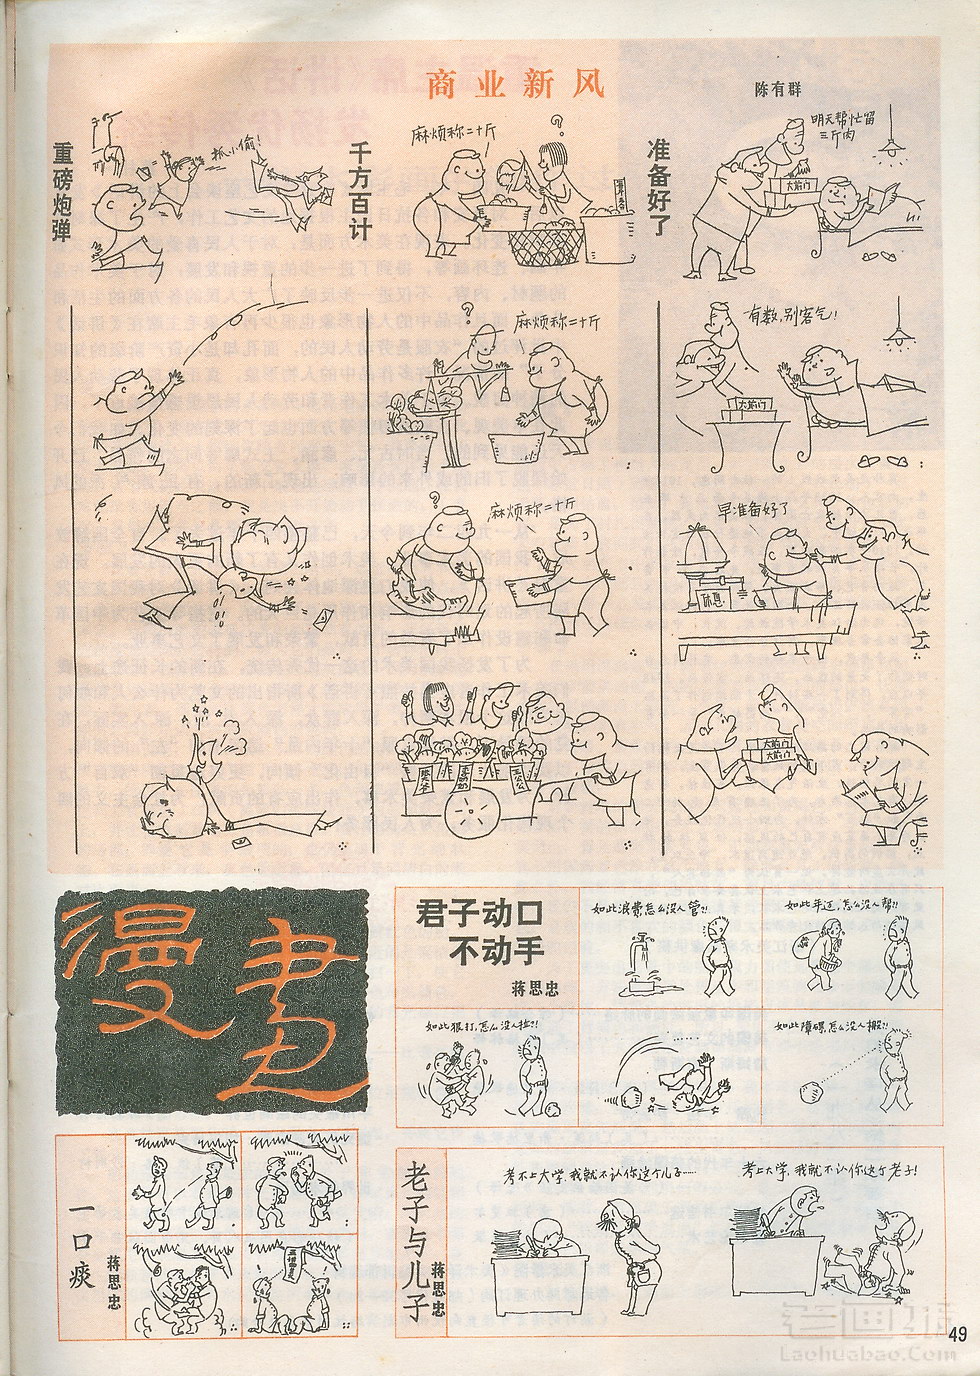 商业新风
陈有群
重磅炮弹
抓小偷!
千方百计
麻烦称二十斤
?
?
麻烦称二十斤
?
麻烦称二十斤
准备好了
明天帮忙留
三斤肉
大前门
有数,别客气!
大前门
早准备好了
休息
大前门
大前门
漫画
君子动口
不动手
蒋思忠
如此浪费怎么没人管?!
如此年迈,怎么没人帮?!
如此狠打,怎么没人拉?!
如此障碍,怎么没人搬?!
一口痰
蒋思忠
老子与儿子
蒋思忠
考不上大学,我就不认你这个儿子……
考上大学,我就不认你这个老子!
老画报
Laohuabao.Com
49